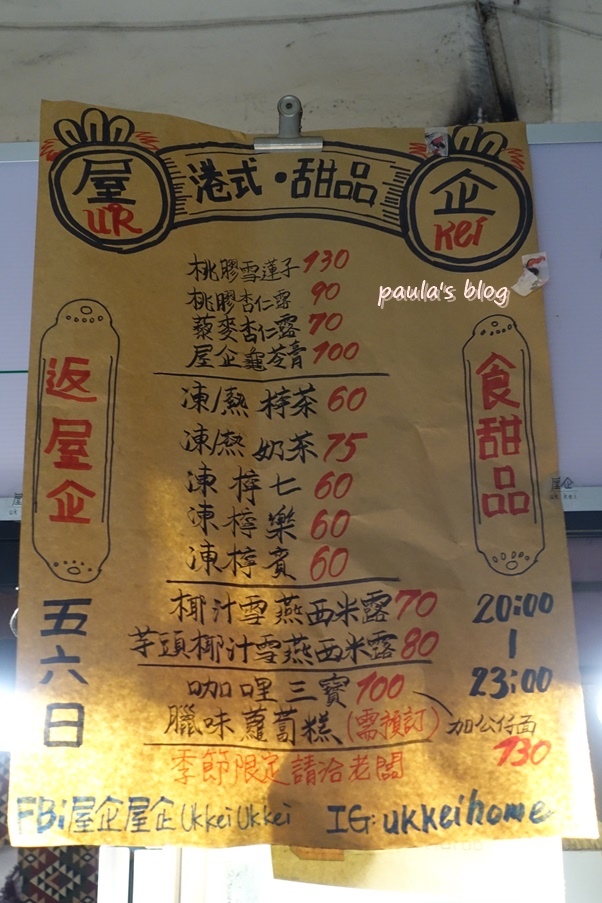 屋 UR 港式・甜品 企 Kei
桃膠雪蓮子 130
桃膠杏仁露 90
藜麥杏仁露 70
屋企龜苓膏 100
凍/熱 檸茶 60
凍/熱 奶茶 75
凍檸七 60
凍檸樂 60
凍檸賓 60
椰汁雪燕西米露 70
芋頭椰汁雪燕西米露 80
咖哩三寶 100
臘味蘿蔔糕(需預訂)
加公仔麵 130
季節限定請洽老闆
返屋企
食甜品
五六日
20:00
|
23:00
FB:屋企屋企UkkeiUkkei IG:ukkeihome
paula's blog